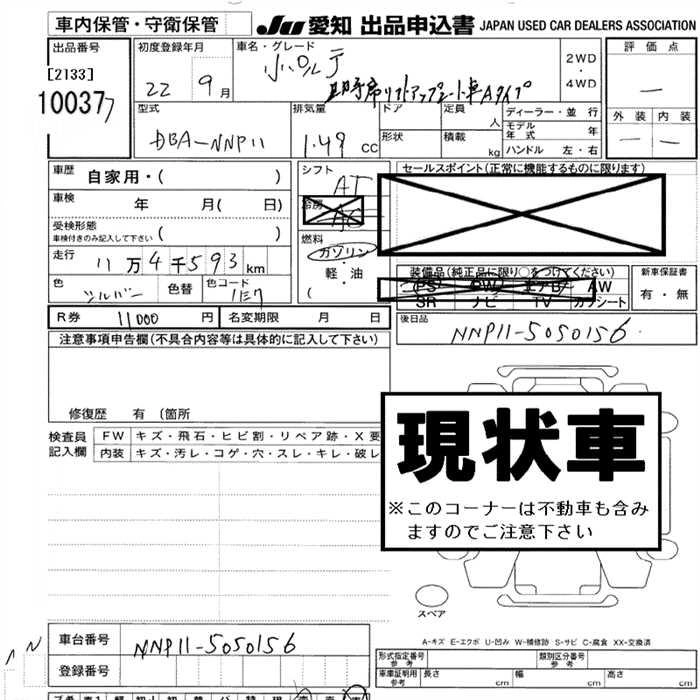 車内保管・守衛保管
JU 愛知 出品申込書 JAPAN USED CAR DEALERS ASSOCIATION
出品番号
[2133]
10037
初度登録年月
22 9月
車名・グレード
ポルテ
助手席リフトアップシート車Aタイプ
2WD
・
4WD
評価点
—
外装 内装
— —
型式
DBA-NNP11
排気量
1.49 cc
ドア
形状
定員
人
積載
kg
ディーラー・並行
モデル年式 年
ハンドル 左・右
車歴 自家用・( )
車検 年 月( 日)
受検形態
車検付きのみ記入して下さい ( )
走行 11万4千593km
色 シルバー 色替 色コード 1E7
シフト
AT
冷房
AC
燃料
ガソリン
・
軽・油
(
セールスポイント(正常に機能するものに限ります)
装備品(純正品に限り○をつけてください)
PS PW エアB AW
SR ナビ TV カワシート
新車保証書
有・無
R券 11000 円 名変期限 月 日
後日品
NNP11-5050156
注意事項申告欄(不具合内容等は具体的に記入して下さい)
修復歴 有 (箇所
検査員
記入欄
FW キズ・飛石・ヒビ割・リペア跡・X要
内装 キズ・汚レ・コゲ・穴・スレ・キレ・破レ
現状車
※このコーナーは不動車も含み
ますのでご注意下さい
スペア
A-キズ E-エクボ U-凹み W-補修跡 S-サビ C-腐食 XX-交換済
車台番号 NNP11-5050156
登録番号
形式指定番号
参考
類別区分番号
参考
車庫証明用
参考
長さ cm 幅 cm 高さ cm